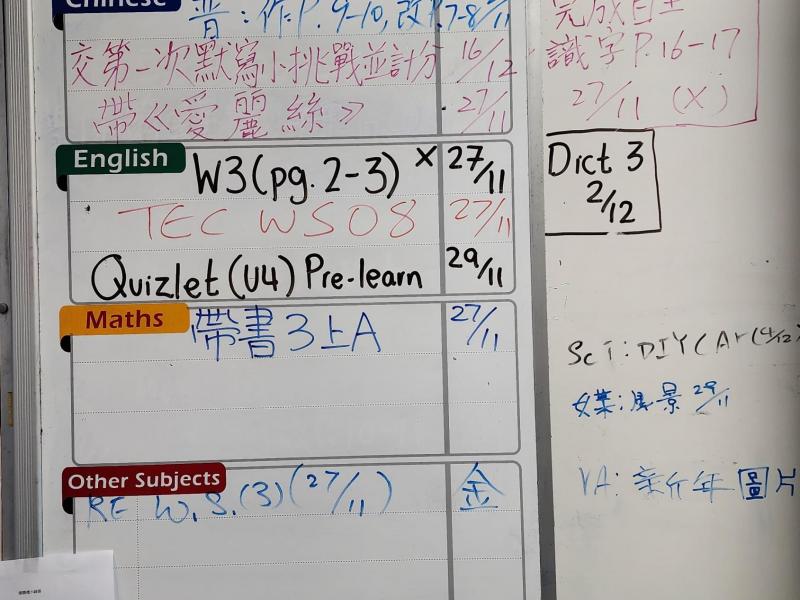 Chinese
普:作:P.9-10,改P.7-8 /11
交第一次默寫小挑戰並計分 16/12
帶《愛麗絲》 27/11
English
W3(pg. 2-3) × 27/11
TEC WS08 27/11
Quizlet(U4) Pre-learn 29/11
Maths
帶書3上A 27/11
Other Subjects
RE W.S.(3)(27/11) 金
識字P.16-17
27/11 (X)
Dict 3
2/12
Sci:DIY(Ar(4/12)
風景 29/11
VA: 年圖片